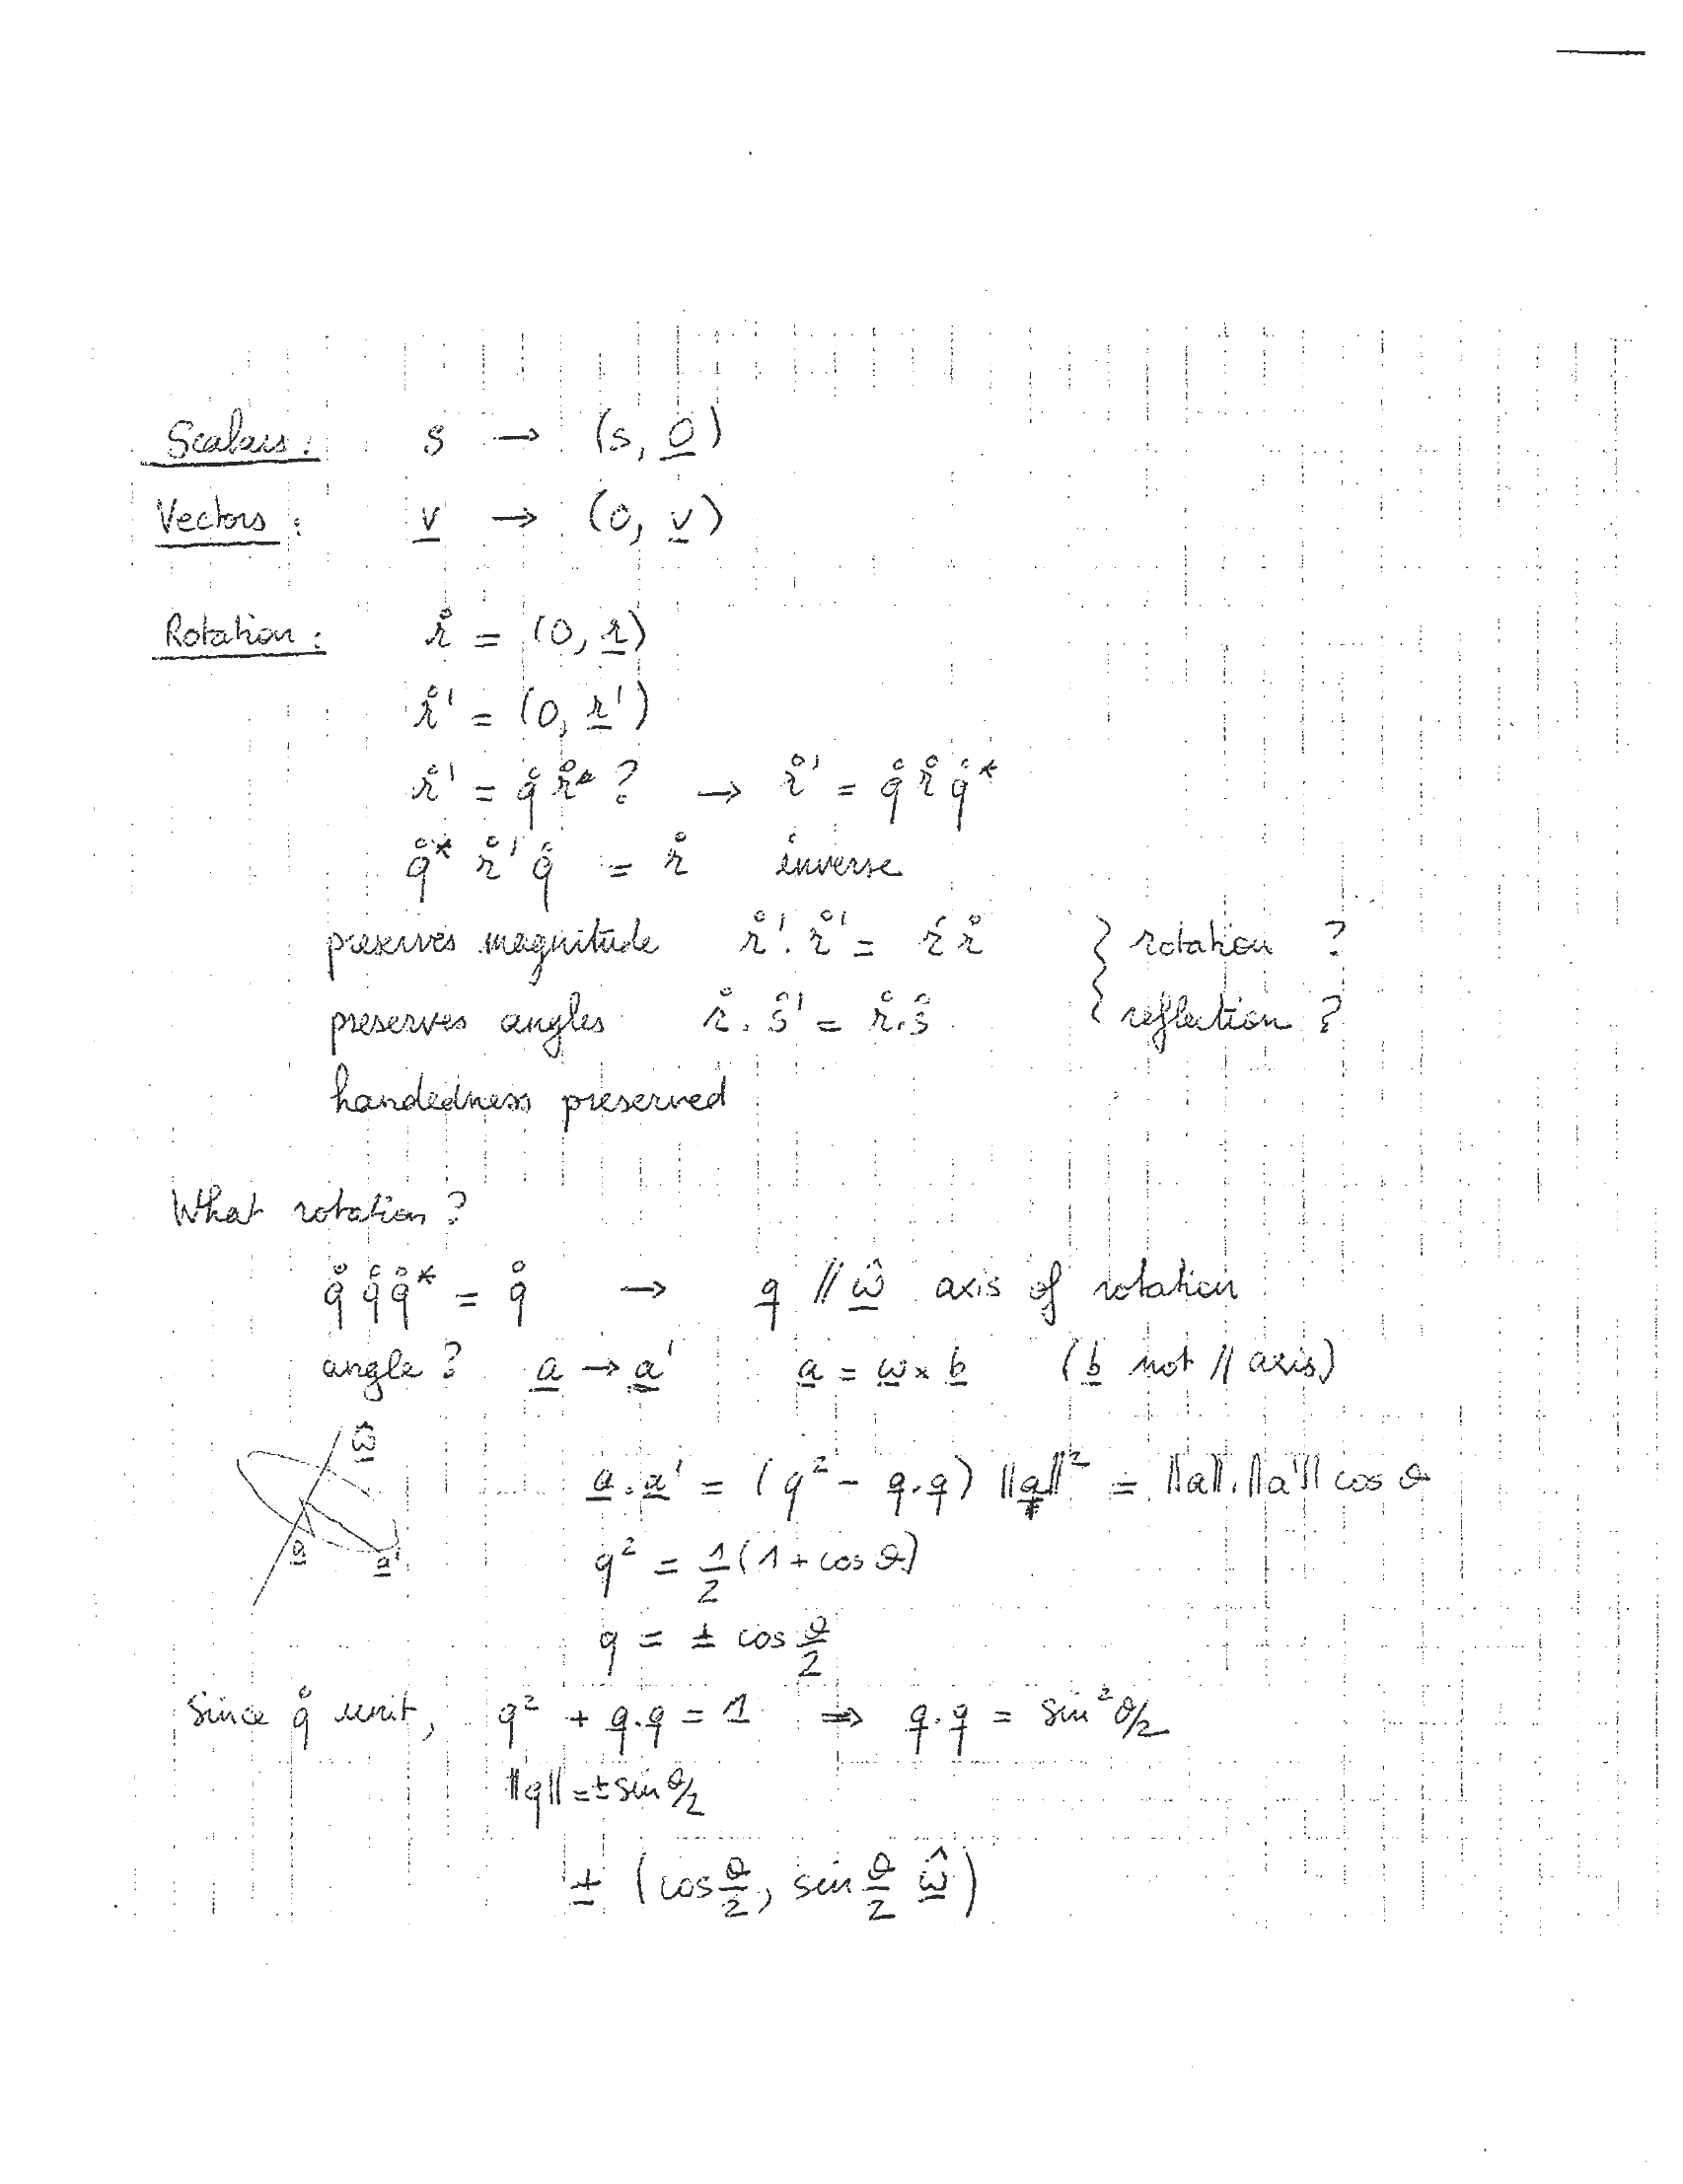 Scalars : s → (s, 0̲)
Vectors : v̲ → (0, v̲)
Rotation : r̊ = (0, r̲)
r̊' = (0, r̲')
r̊' = q̊ r̊* ? → r̊' = q̊ r̊ q̊*
q̊* r̊' q̊ = r̊ inverse
preserves magnitude r̊'. r̊' = r̊ r̊ } rotation ?
preserves angles r̊. s̊' = r̊. s̊ { reflection ?
handedness preserved
What rotation ?
q̊ q̊ q̊* = q̊ → q̲ // ω̲̂ axis of rotation
angle ? a̲ → a̲' a̲ = ω̲ × b̲ (b̲ not // axis)
ω̲̂
a̲ a̲'
a̲ . a̲' = (q² - q̲ . q̲) ||a̲||² = ||a||. ||a'|| cos θ
q² = 1/2 (1 + cos θ)
q = ± cos θ/2
Since q̊ unit, q² + q̲ . q̲ = 1 ⇒ q̲ . q̲ = sin² θ/2
||q|| = ± sin θ/2
± (cos θ/2, sin θ/2 ω̲̂)